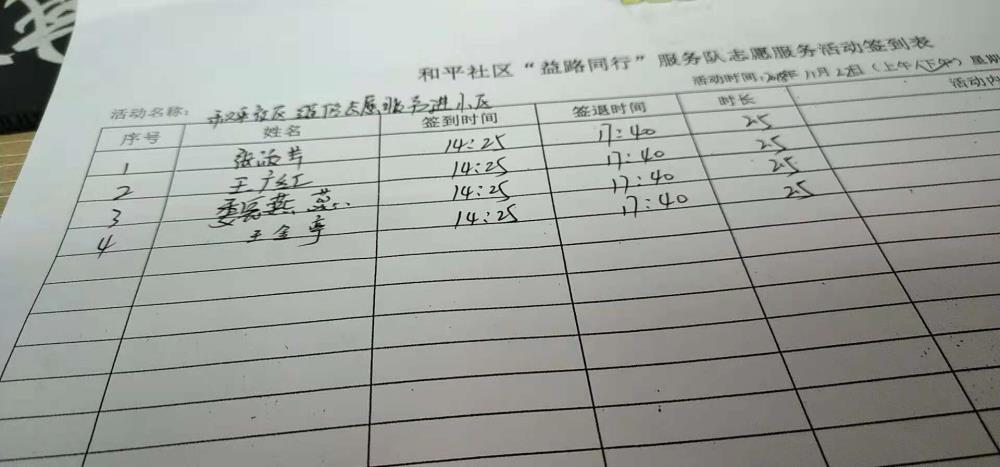 和平社区“益路同行”服务队志愿服务活动签到表
活动时间: 11月2 日(上午/下午)星期
活动名称: 和平社区 志愿服务进小区
序号 姓名 签到时间 签退时间 时长 活动内
1 张 14:25 17:40 25
2 王广红 14:25 17:40 25
3 燕 14:25 17:40 25
4 王金亭 14:25 17:40 25